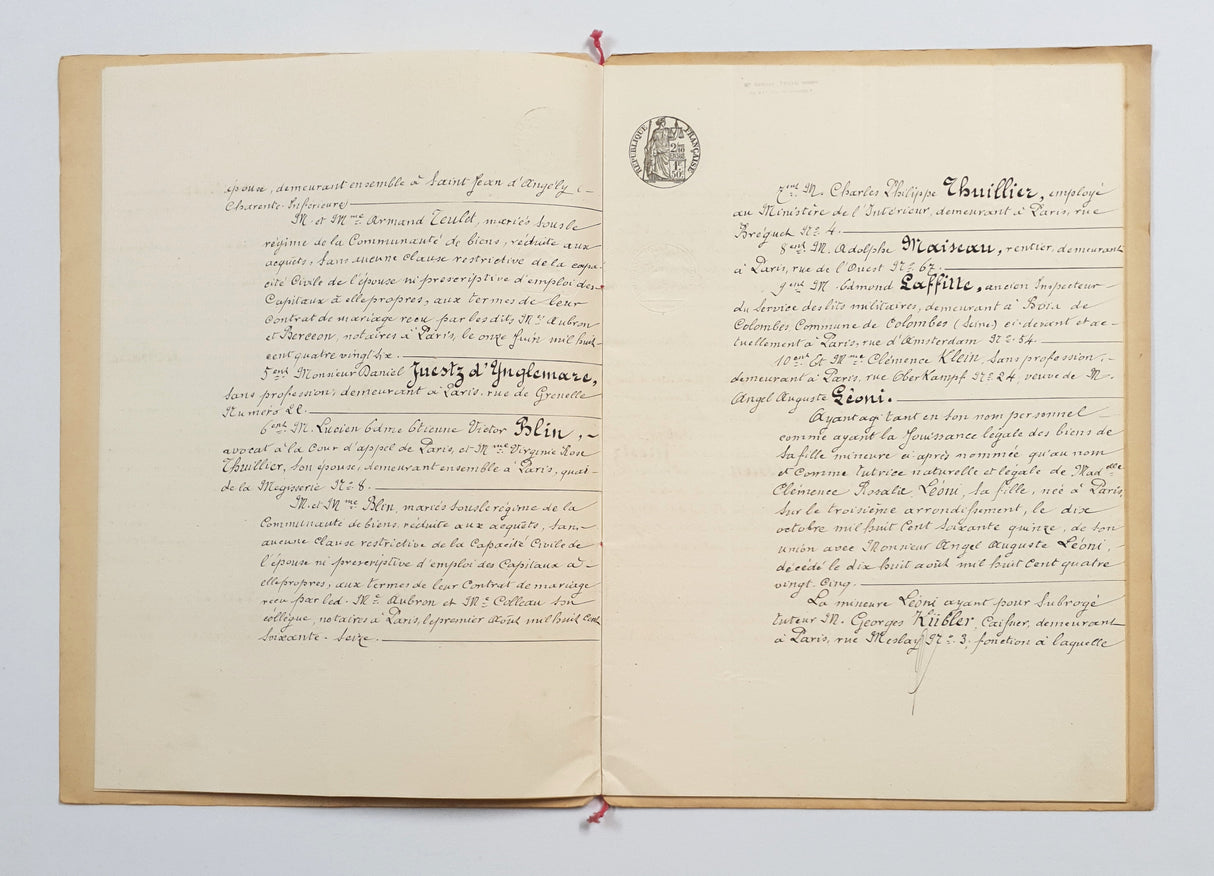 épouse, demeurant ensemble à Saint Jean d'Angely (-
Charente-Inférieure)
M. et Mme Armand Teuld, mariés sous le
régime de la Communauté de biens, réduite aux
acquêts, sans aucune clause restrictive de la capa-
cité Civile de l'épouse ni prescriptive d'emploi des
Capitaux à elle propres, aux termes de leur
Contrat de mariage reçu par lesdits Mes Aubron
et Berceon, notaires à Paris, le onze Juin mil huit
cent quatre vingt six.
5ent Monsieur Daniel Juestz d'Ynglemare,
sans profession, demeurant à Paris, rue de Grenelle
Numéro 22.
6ent M. Lucien Edme Etienne Victor Blin, -
avocat à la Cour d'appel de Paris, et Mme Virginie Rose
Thuillier, son épouse, demeurant ensemble à Paris, quai-
de la Mégisserie No 8.
M. et Mme Blin, mariés sous le régime de la
Communauté de biens, réduite aux acquêts, sans-
aucune clause restrictive de la Capacité Civile de
l'épouse ni prescriptive d'emploi des Capitaux à -
elle propres, aux termes de leur Contrat de mariage
reçu par led. Me Aubron et Me Colleau son
collègue, notaires à Paris, le premier Août mil huit Cent
soixante-seize.
RÉPUBLIQUE FRANÇAISE
7ent M. Charles Philippe Thuillier, employé
au Ministère de l'Intérieur, demeurant à Paris, rue
Bréguet No 4.
8ent M. Adolphe Maiseau, rentier, demeurant
à Paris, rue de l'Ouest No 67.
9ent M. Edmond Laffitte, ancien Inspecteur-
du Service des lits militaires, demeurant à Bois de
Colombes Commune de Colombes (Seine) ci-devant et ac-
tuellement à Paris, rue d'Amsterdam No 54.
10ent Et Mme Clémence Klein, Sans profession, -
demeurant à Paris, rue Oberkampf No 24, veuve de M.
Angel Auguste Léoni.
Ayant agi tant en son nom personnel
comme ayant la Jouissance légale des biens de
sa fille mineure ci après nommée qu'au nom
et Comme tutrice naturelle et légale de Madelle
Clémence Rosalie, Léoni, sa fille, née à Paris,
sur le troisième arrondissement, le dix
octobre mil huit Cent soixante quinze, de son
union avec Monsieur Angel Auguste Léoni, -
décédé le dix huit août mil huit Cent quatre
vingt-Cinq.
La mineure Léoni ayant pour Subrogé
tuteur M. Georges Kübler, Caissier, demeurant
à Paris, rue Meslay No 3, fonction à laquelle